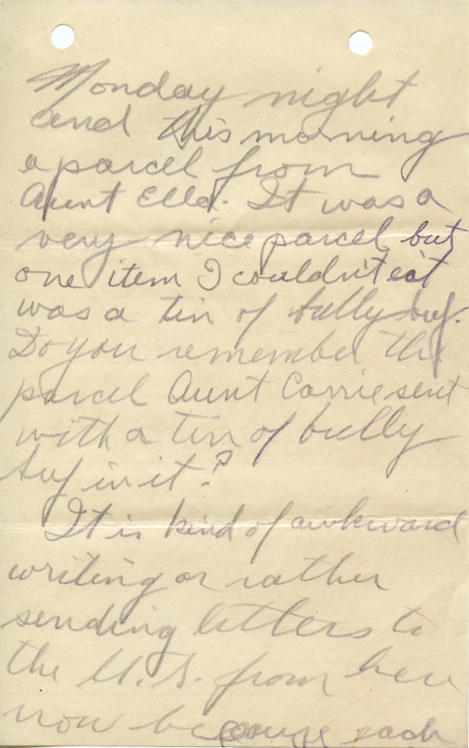 Monday night
and this morning
a parcel from
Aunt Ella. It was a
very nice parcel but
one item I couldn't eat
was a tin of bully beef.
Do you remember the
parcel Aunt Carrie sent
with a tin of bully
beef in it?
It is kind of awkward
writing or rather
sending letters to
the U.S. from here
now because each